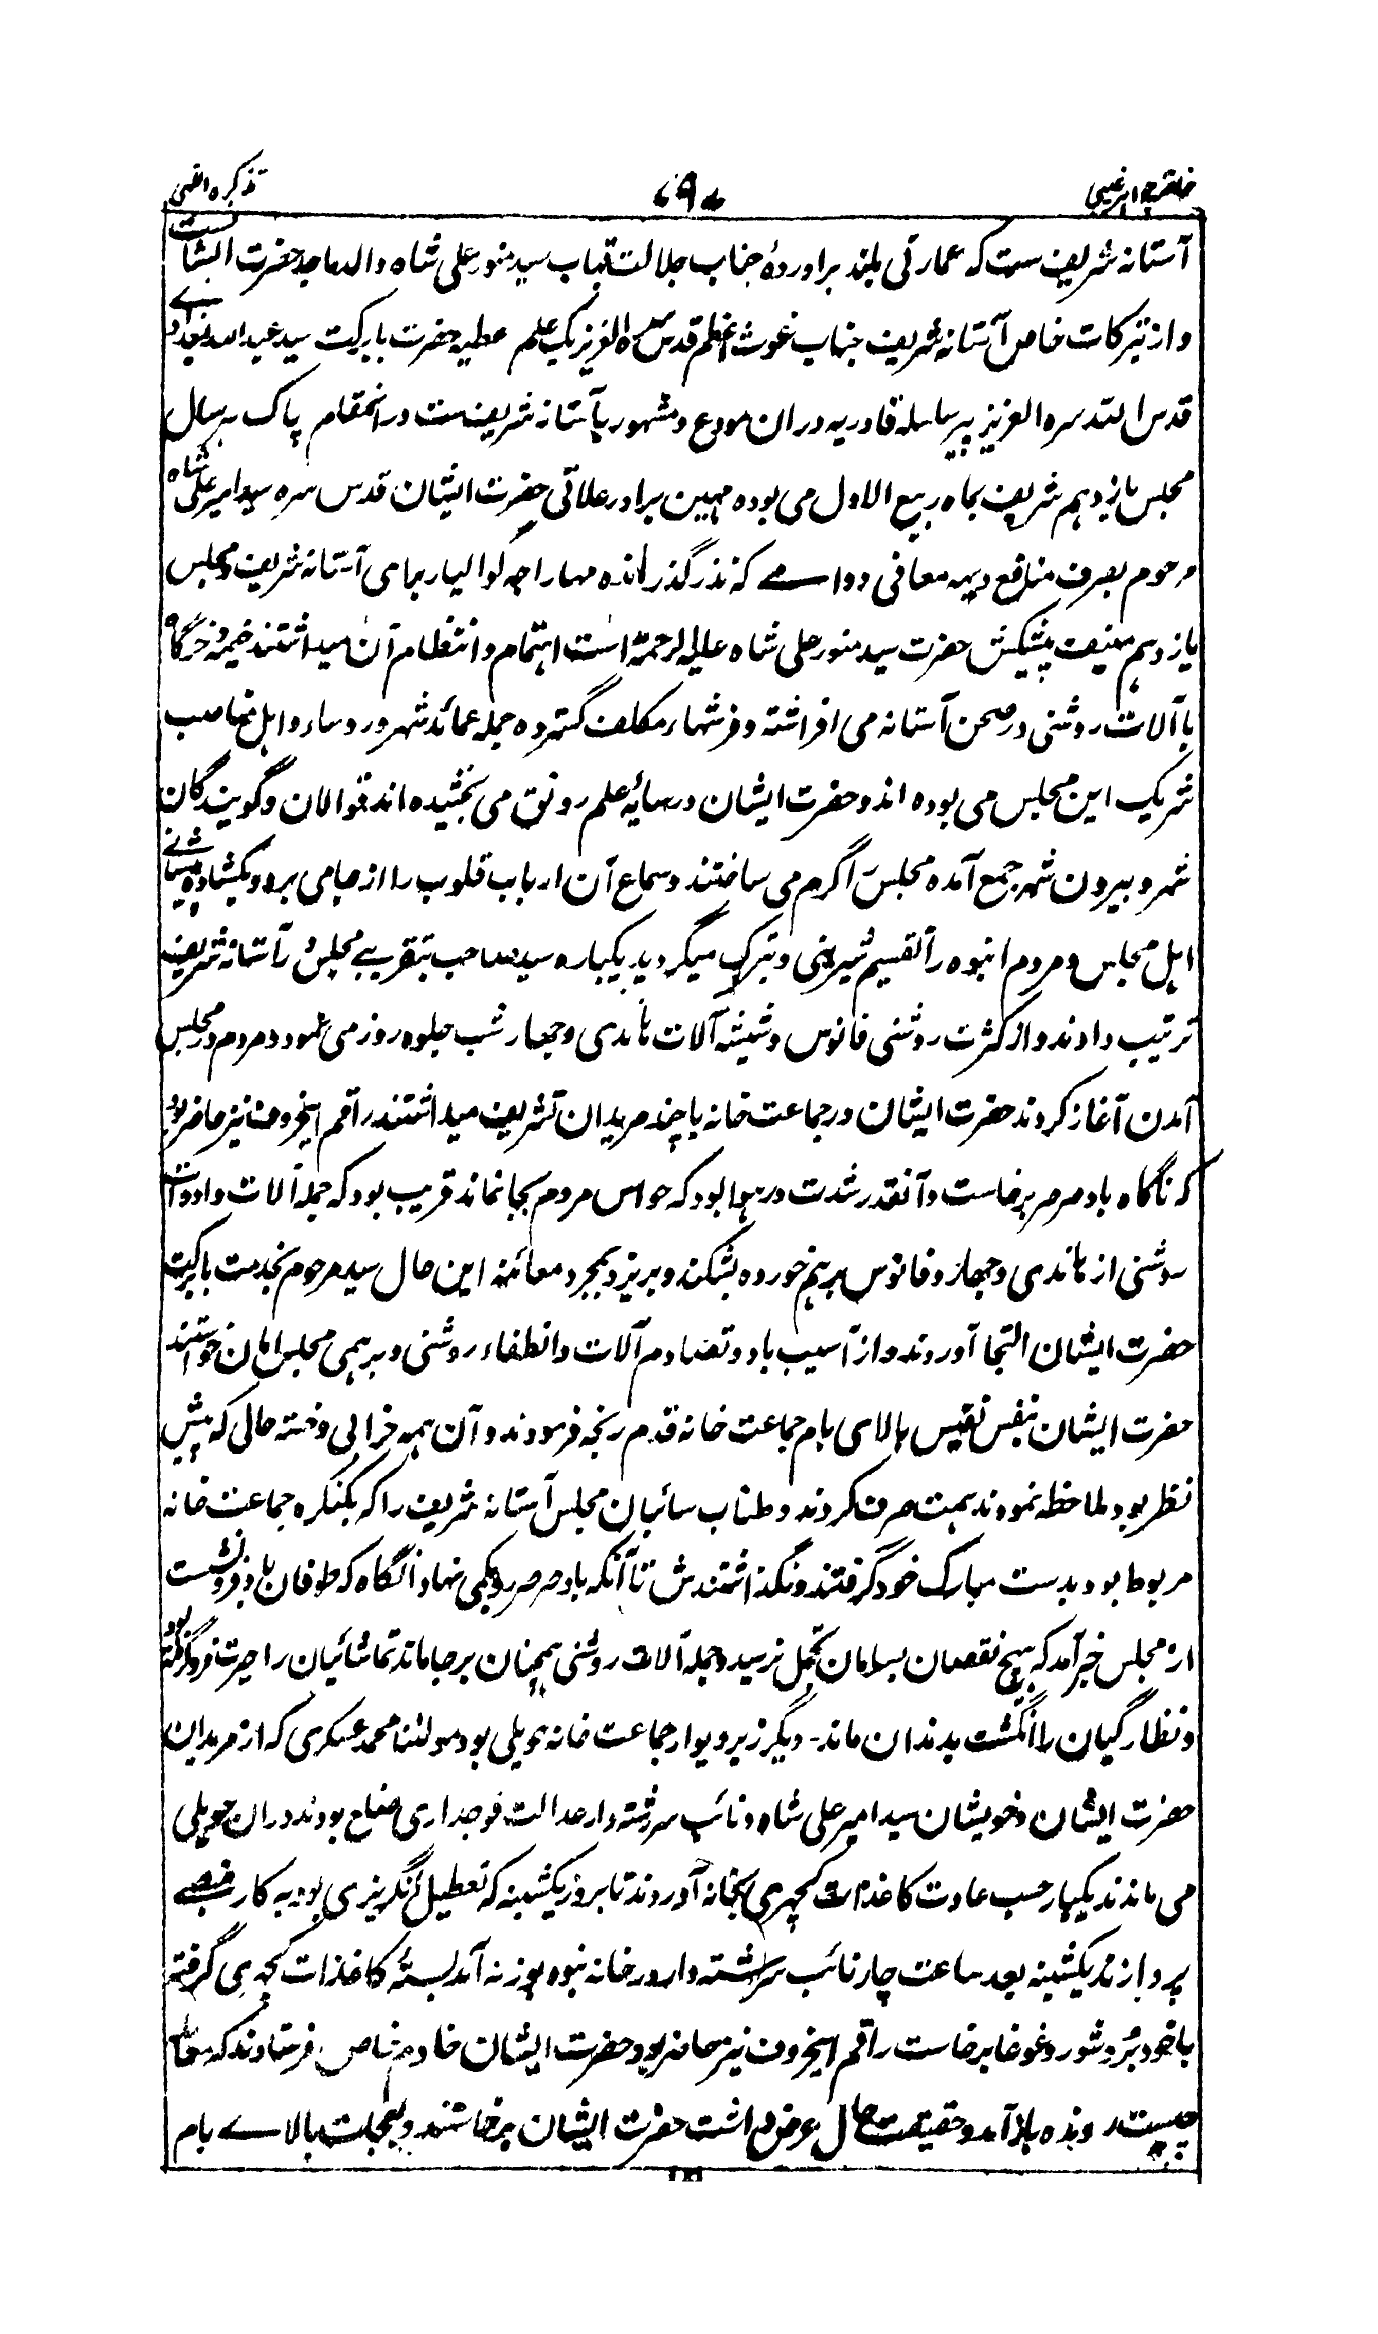 خلف جواہر غیبی
﴿۹﴾
تذکرہ الغنی
آستانہ شریف ست کہ عمارتی بلند برآوردۂ جناب جلالت قباب سید منور علی شاہ والد ماجد حضرت ایشانست
و از تبرکات خاص آستانہ شریف جناب غوث اعظم قدس سرہ العزیز یک علم عطیہ حضرت بابرکت سید عبداللہ بغدادی
قدس اللہ سرہ العزیز پیر سلسلہ قادریہ دران مودع و مشہور بآستانہ شریف ست در انمقام پاک ہر سال
مجلس یازدہم شریف بماہ ربیع الاول می بودہ مہین برادر علاتی حضرت ایشان قدس سرہ سید امیر علی شاہ
مرحوم بصرف منافع دیہہ معافی دوامے کہ نذر گذرانده مہاراجہ گوالیار برای آستانہ شریف و مجلس
یازدہم منیف پیشکش حضرت سید منور علی شاہ علیہ الرحمۃ است اہتمام و انتظام آن میداشتند خیمہ و خرگاہ
با آلات روشنی در صحن آستانہ می افراشتہ و فرشهاء مکلف گستردہ جملہ عمائد شہر و روساء و اہل مناصب
شریک این مجلس می بودہ اند و حضرت ایشان در سایۂ علم رونق می بخشیدہ اند قوالان و گویندگان
شہر و بیرون شہر جمع آمدہ مجلس را گرم می ساختند و سماع آن ارباب قلوب را از جا می برد و بکشادہ پیشانے
اہل مجلس و مردم انبوہ را تقسیم شیرینی و تبرک میگردید یکبارہ سید صاحب بتقریبے مجلس در آستانہ شریف
ترتیب دادند و از کثرت روشنی فانوس و شیشہ آلات ہاندی و جھاڑ شب جلوہ روز می نمود و مردم در مجلس
آمدن آغاز کردند حضرت ایشان در جماعت خانہ با چند مریدان تشریف میداشتند راقم الحروف نیز حاضر بود
کہ ناگاہ باد صرصر برخاست و آنقدر شدت در ہوا بود کہ حواس مردم بجا نماند قریب بود کہ جملہ آلات و ادوات
روشنی از ہاندی و جھاڑ و فانوس برہم خوردہ بشکند و بریزد بمجرد معائنہ این حال سید مرحوم بخدمت بابرکت
حضرت ایشان التجا آوردند و از آسیب باد و تصادم آلات و انطفاء روشنی و برہمی مجلس امان خواستند
حضرت ایشان بنفس نفیس بالای بام جماعت خانہ قدم رنجہ فرمودند و آن ہمہ خرابی و خستہ حالی کہ پیش
نظر بود ملاحظہ نمودند ہمت صرف کردند و طناب سائبان مجلس آستانہ شریف را کہ بکنگرہ جماعت خانہ
مربوط بود بدست مبارک خود گرفتند و نگذاشتندش تا آنکہ باد صرصر رو بکمی نہاد آنگاہ کہ طوفان باد فرو نشست
از مجلس خبر آمد کہ ہیچ نقصان بسامان تجمل نرسید و جملہ آلات روشنی ہمچنان بر جا ماند تماشائیان را حیرت فرو گرفتہ بود
و نظارگیان را انگشت بدندان ماند - دیگر زیر دیوار جماعت خانہ حویلی بود مولٰنا محمد عسکری کہ از مریدان
حضرت ایشان و خویشان سید امیر علی شاہ و نائب سررشتہ دار عدالت فوجداری ضلع بودند دران حویلی
می ماندند یکبار حسب عادت کاغذات کچہری بخانہ آوردند تا بروز یکشنبہ کہ تعطیل انگریزی بود بہ کار منصبے
پردازند یکشنبہ بعد ساعت چار نائب سررشتہ دار در خانہ نبودہ بوزنہ آمد بستۂ کاغذات کچہری گرفتہ
با خود برد شور و غوغا برخاست راقم الحروف نیز حاضر بود حضرت ایشان خادم خاص فرستادند کہ معاملہ
چیست روندہ باز آمد و حقیقت حال عرض داشت حضرت ایشان برخاستند و بعجلت بالاے بام